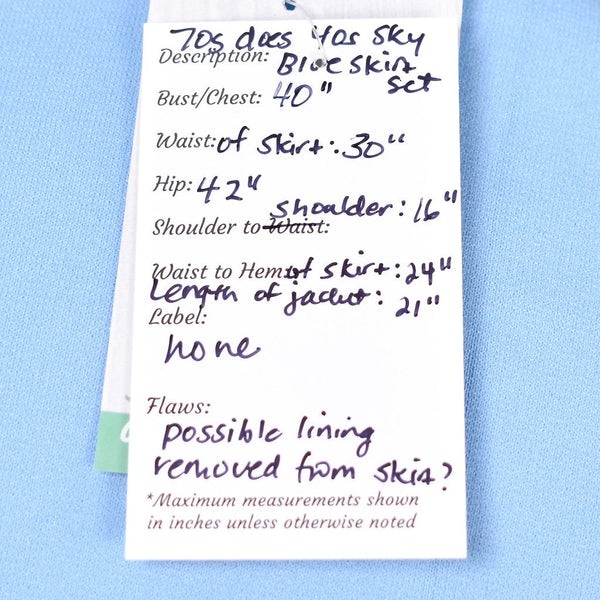 70s does 40s sky
Description: Blue skirt
set
Bust/Chest: 40"
Waist: of skirt: 30"
Hip: 42"
shoulder: 16"
Shoulder to Waist:
Waist to Hem: of skirt: 24"
Length of jacket: 21"
Label:
none
Flaws:
possible lining
removed from skirt?
*Maximum measurements shown
in inches unless otherwise noted